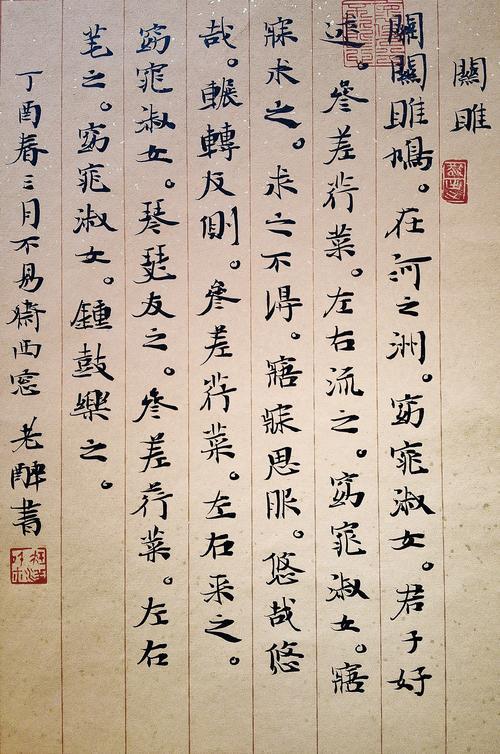 關雎
關關雎鳩。在河之洲。窈窕淑女。君子好
逑。參差荇菜。左右流之。窈窕淑女。寤
寐求之。求之不得。寤寐思服。悠哉悠
哉。輾轉反側。參差荇菜。左右采之。
窈窕淑女。琴瑟友之。參差荇菜。左右
芼之。窈窕淑女。鍾鼓樂之。
丁酉春三月不易衛西窓 老醉書